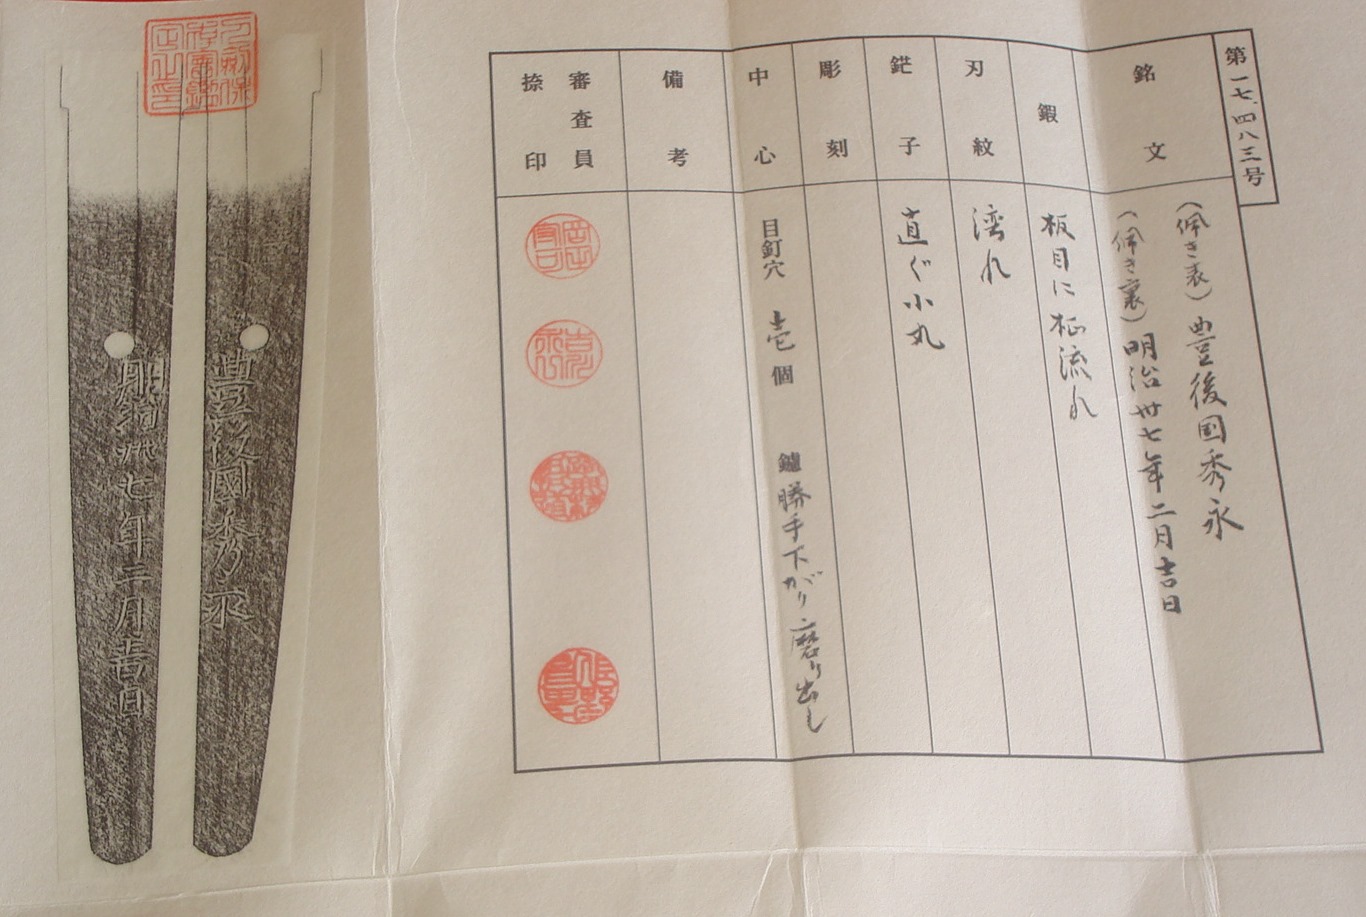 第一七、四八三号
銘文
(佩き表)豊後国秀永
(佩き裏)明治卅七年二月吉日
鍛
板目に柾流れ
刃紋
湾れ
鋩子
直ぐ小丸
彫刻
中心
目釘穴 壱個 鑢 勝手下がり 磨り出し
備考
審査員
捺印
豊後國秀永
明治卅七年二月吉日